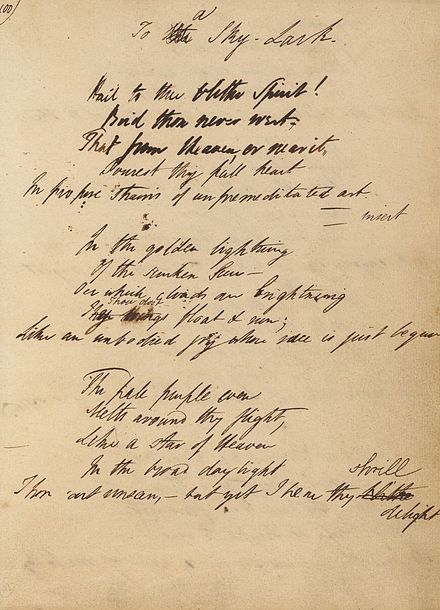 To a Sky-Lark.
Hail to thee blithe Spirit!
Bird thou never wert,
That from Heaven, or near it,
Pourest thy full heart
In profuse strains of unpremeditated art
insert
In the golden lightning
Of the sunken Sun –
Oer which clouds are brightning
Thou dost float & run;
Like an unbodied joy whose race is just begun
The pale purple even
Melts around thy flight,
Like a star of Heaven
In the broad daylight
Thou art unseen, – but yet I hear thy shrill
delight